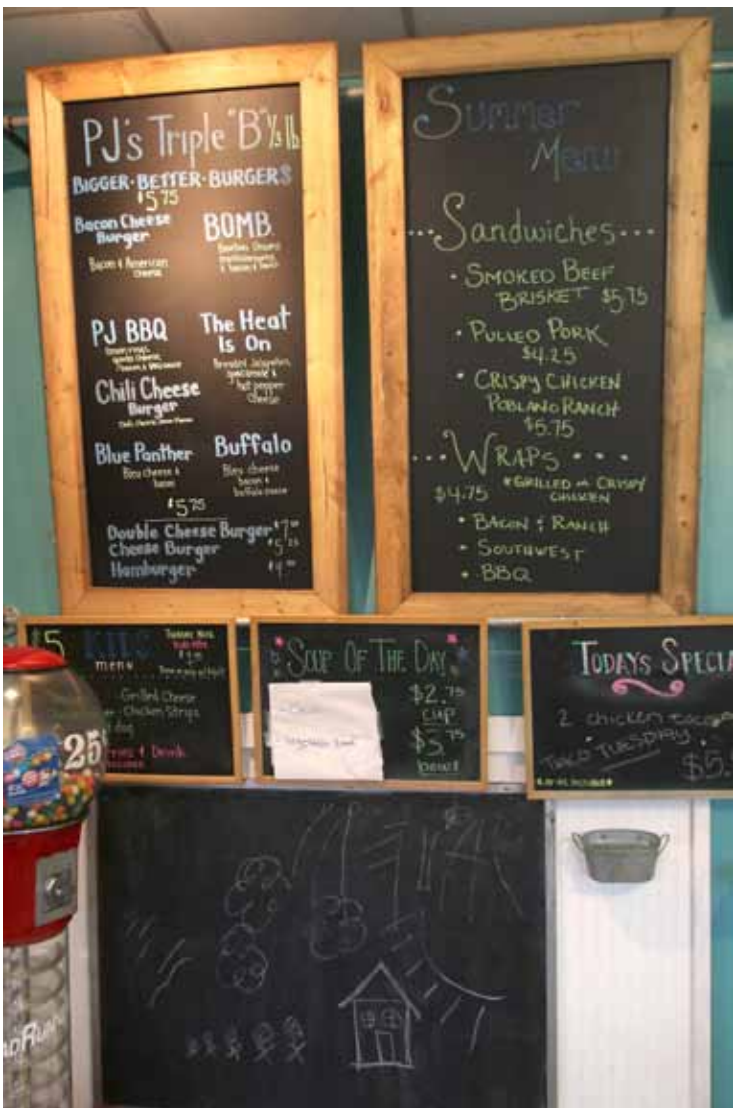 PJ's Triple "B" 1/3 lb
BIGGER·BETTER·BURGERS
$5.75
Bacon Cheese
Burger
Bacon & American
Cheese
BOMB
PJ BBQ
The Heat
Is On
Breaded Jalapeños,
hot pepper
cheese
Chili Cheese
Burger
Blue Panther
Bleu cheese &
bacon
Buffalo
Bleu cheese
bacon &
buffalo sauce
$5.75
Double Cheese Burger
Cheese Burger $5.25
Hamburger
Summer
Menu
...Sandwiches...
• SMOKED BEEF
BRISKET $5.75
• PULLED PORK
$4.25
• CRISPY CHICKEN
POBLANO RANCH
$5.75
...WRAPS...
$4.75 *GRILLED or CRISPY
CHICKEN
• BACON & RANCH
- SOUTHWEST
• BBQ
$5 KIDS
menu
Grilled Cheese
Chicken Strips
dog
& Drink
SOUP OF THE DAY
$2.75
CUP
$3.75
bowl
TODAYS SPECIA
2 chicken tacos
TACO TUESDAY
$5.
25¢